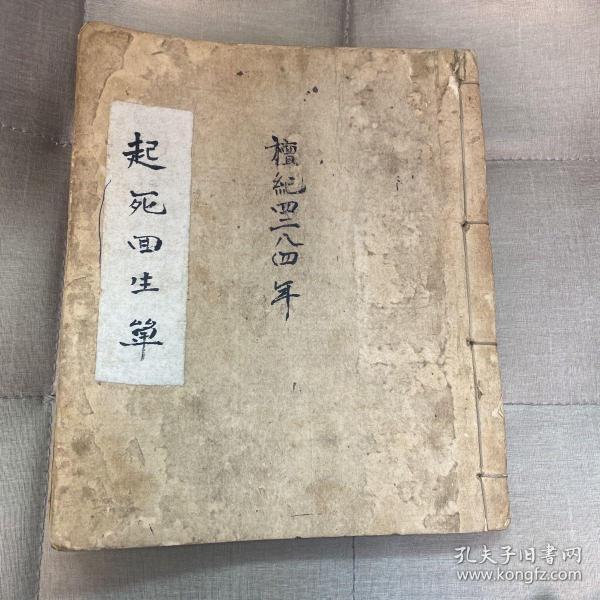 檀紀四二八四年
起死回生箄
孔夫子旧书网
www.kongfz.com